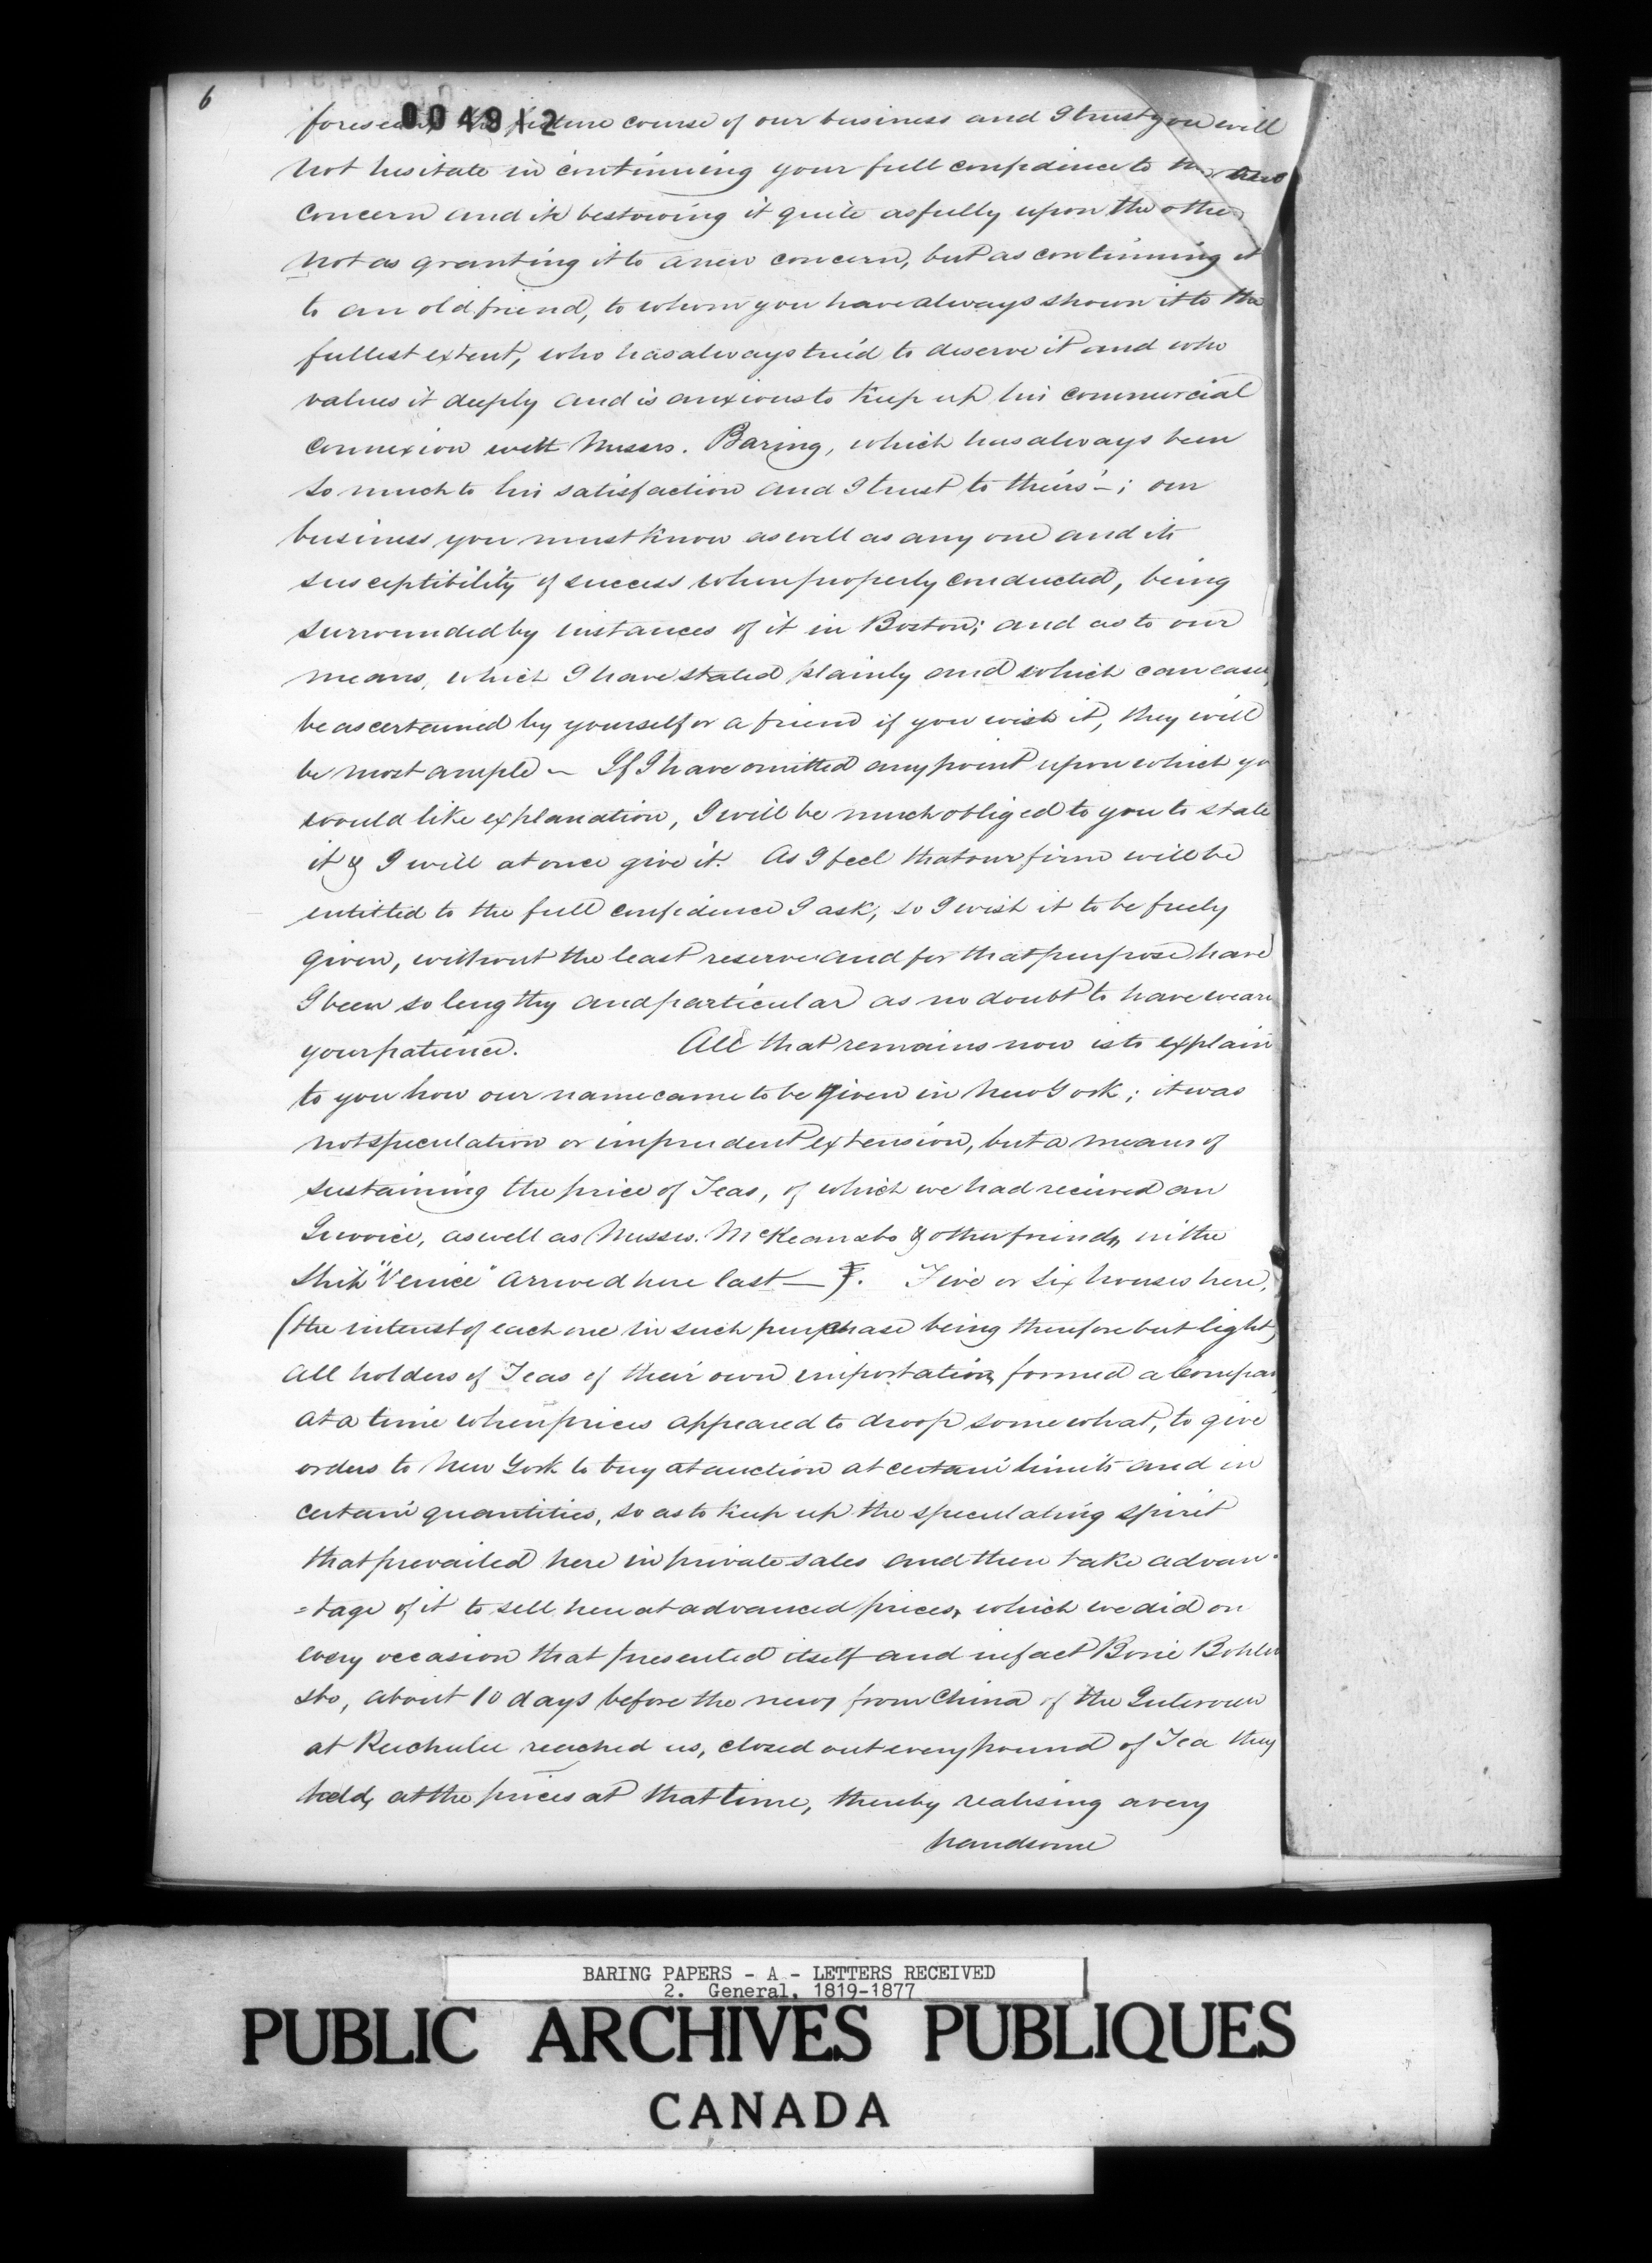 6
004912
foreseen the future course of our business and I trust you will
not hesitate in continuing your full confidence to the
concern and in bestowing it quite as fully upon the other
not as granting it to a new concern, but as continuing it
to an old friend, to whom you have always shown it to the
fullest extent, who has always tried to deserve it and who
values it deeply and is anxious to keep up his commercial
connexion with Messrs. Baring, which has always been
so much to his satisfaction and I trust to theirs—; our
business you must know as well as any one and its
susceptibility of success when properly conducted, being
surrounded by instances of it in Boston; and as to our
means, which I have stated plainly and which can easily
be ascertained by yourself or a friend if you wish it, they will
be most ample — If I have omitted any point upon which yo
would like explanation, I will be much obliged to you to state
it & I will at once give it. As I feel that our firm will be
entitled to the full confidence I ask, so I wish it to be freely
given, without the least reserve and for that purpose have
I been so lengthy and particular as no doubt to have wear
your patience. All that remains now is to explain
to you how our name came to be given in New York; it was
not speculation or imprudent extension, but a means of
sustaining the price of Teas, of which we had received an
Invoice, as well as Messrs. McKean &co & other friends, in the
Ship "Venice" arrived here last — . Five or six houses here,
(the interest of each one in such purchase being therefore but light)
all holders of Teas of their own importation, formed a Compan
at a time when prices appeared to droop somewhat, to give
orders to New York to buy at auction at certain limits and in
certain quantities, so as to keep up the speculating spirit
that prevailed here in private sales and then take advan-
=tage of it to sell here at advanced prices, which we did on
every occasion that presented itself and in fact Borie Bohlen
&co, about 10 days before the news from China of the Interview
at reached us, closed out every pound of Tea they
held, at the prices at that time, thereby realising a very
handsome
BARING PAPERS - A - LETTERS RECEIVED
2. General, 1819-1877
PUBLIC ARCHIVES PUBLIQUES
CANADA